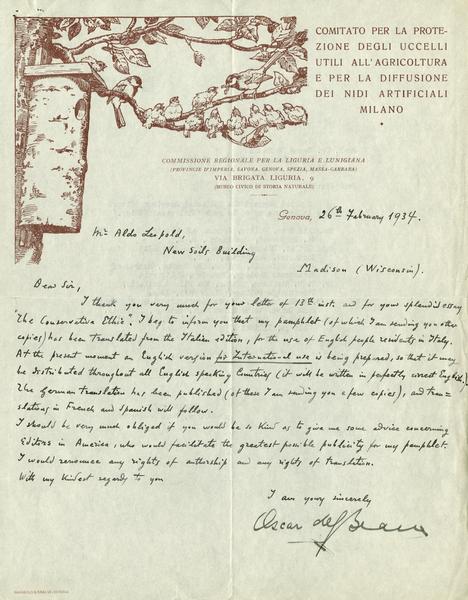 COMITATO PER LA PROTE-
ZIONE DEGLI UCCELLI
UTILI ALL'AGRICOLTURA
E PER LA DIFFUSIONE
DEI NIDI ARTIFICIALI
MILANO
COMMISSIONE REGIONALE PER LA LIGURIA E LUNIGIANA
(PROVINCIE D'IMPERIA, SAVONA, GENOVA, SPEZIA, MASSA-CARRARA)
VIA BRIGATA LIGURIA, 9
(MUSEO CIVICO DI STORIA NATURALE)
Genova, 26th February 1934.
Mr Aldo Leopold,
New Soils Building
Madison (Wisconsin).
Dear Sir,
I thank you very much for your letter of 13th inst. and for your splendid essay
"The Conservation Ethic". I beg to inform you that my pamphlet (of which I am sending you other
copies) has been translated from the Italian edition, for the use of English people residents in Italy.
At the present moment an English version for International use is being prepared, so that it may
be distributed throughout all English speaking Countries (it will be written in perfectly correct English).
The German translation has been published (of these I am sending you a few copies), and tran=
slations in French and Spanish will follow.
I should be very much obliged if you would be so kind as to give me some advice concerning
Editors in America, who would facilitate the greatest possible publicity for my pamphlet.
I would renounce any rights of authorship and any rights of translation.
With my kindest regards to you
I am yours sincerely
Oscar de Beaux